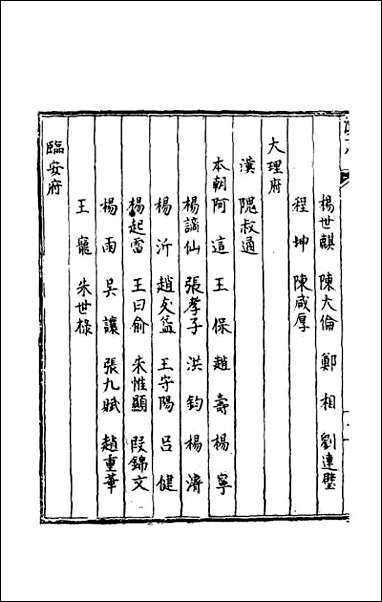 楊世麒 陳大倫 鄭相 劉連璧
程坤 陳咸厚
大理府
漢 隗叔通
本朝 阿這 王保 趙壽 楊寧
楊謫仙 張孝子 洪鈞 楊濟
楊沂 趙文益 王守陽 呂健
楊起雷 王曰俞 朱惟顯 段錦文
楊雨 吳讓 張九賦 趙重華
王寵 朱世祿
臨安府